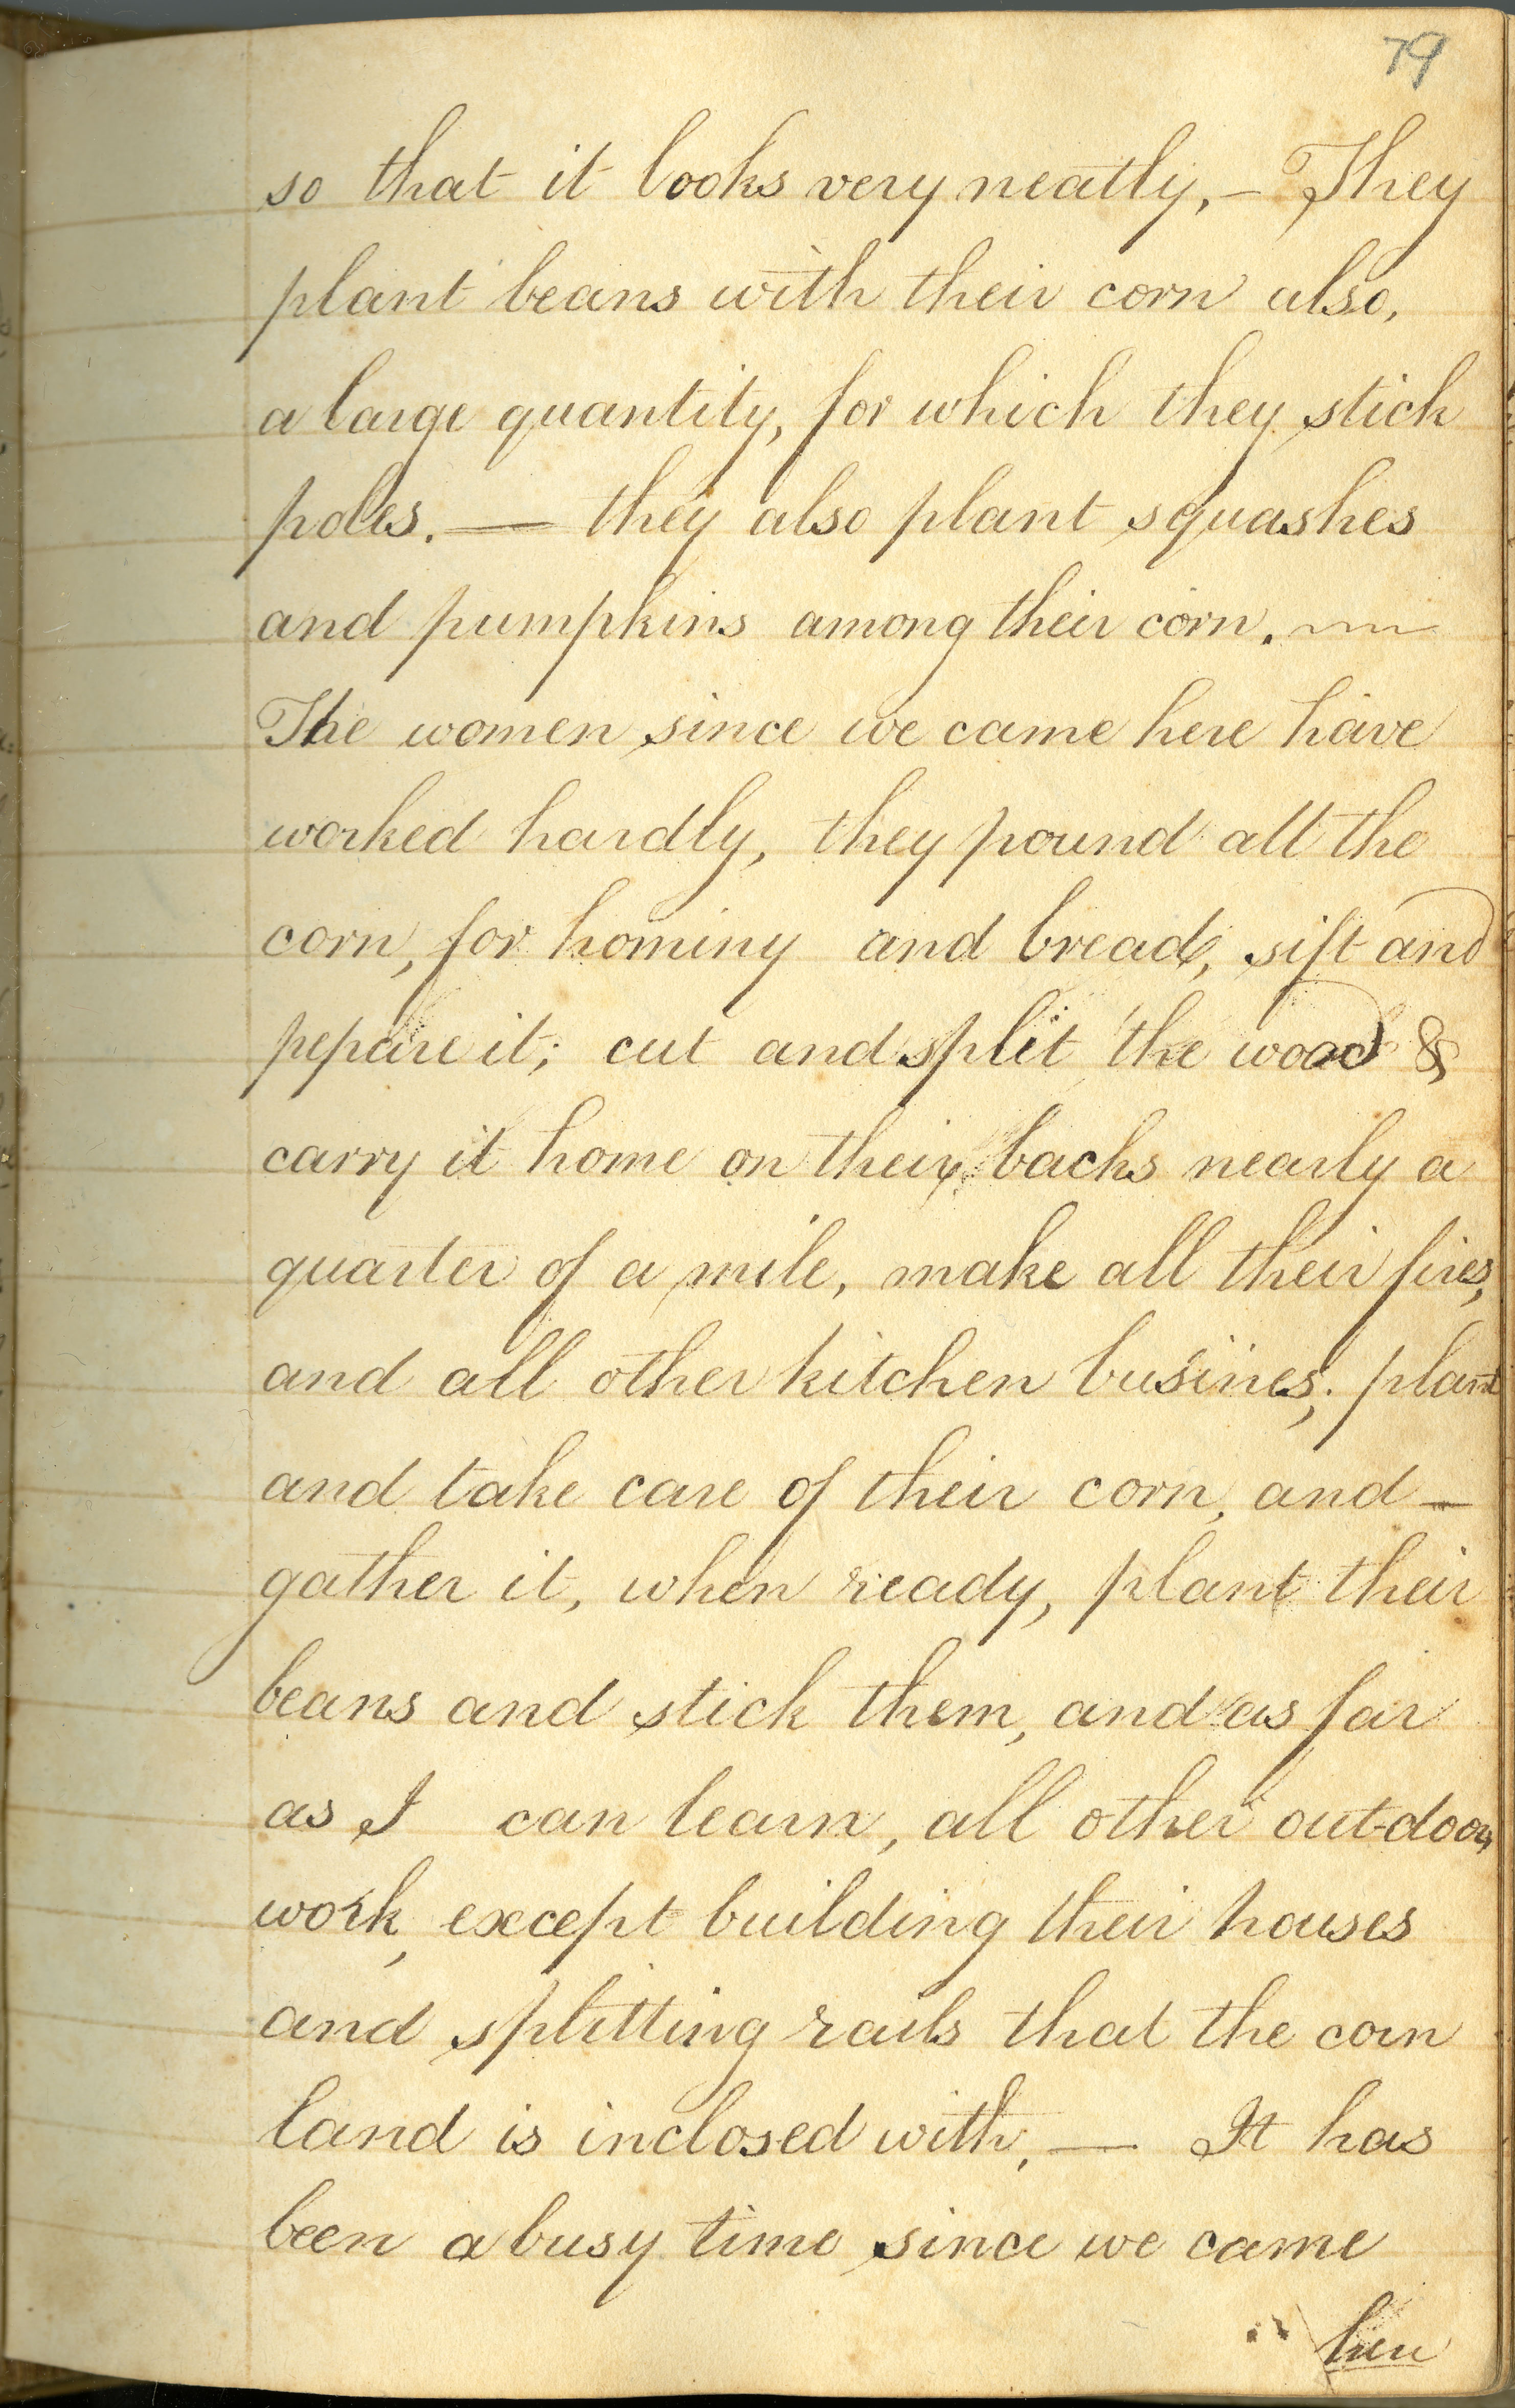 79
so that it looks very neatly, — They
plant beans with their corn also,
a large quantity, for which they stick
poles. — they also plant squashes
and pumpkins among their corn. ~~~
The women since we came here have
worked hardly, they pound all the
corn, for hominy and bread, sift and
pepare it; cut and split the wood &
carry it home on their backs nearly a
quarter of a mile, make all their fires,
and all other kitchen busines; plant
and take care of their corn, and —
gather it, when ready, plant their
beans and stick them, and as far
as I can learn, all other out-door
work, except building their houses
and splitting rails that the corn
land is inclosed with, — It has
been a busy time since we came
here